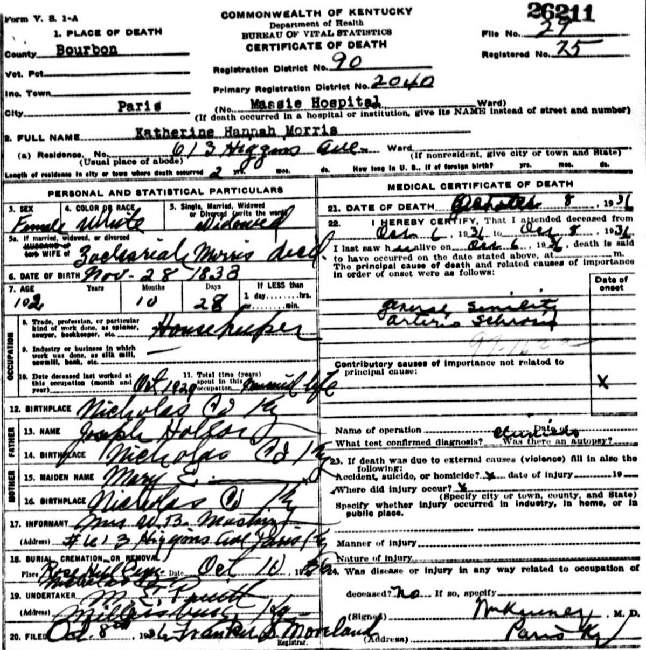 Form V. S. 1-A
COMMONWEALTH OF KENTUCKY
Department of Health
BUREAU OF VITAL STATISTICS
CERTIFICATE OF DEATH
26211
File No. 29
Registered No. 75
1. PLACE OF DEATH
County Bourbon
Vot. Pct
Inc. Town
City Paris
Registration District No. 90
Primary Registration District No. 2040
(No. Massie Hospital Ward)
(If death occurred in a hospital or institution, give its NAME instead of street and number)
2. FULL NAME Katherine Hannah Morris
(a) Residence. No. 613 Higgins Ave. Ward
(Usual place of abode) (If nonresident, give city or town and State)
Length of residence in city or town where death occurred 2 yrs. mos. ds. How long in U. S., if of foreign birth? yrs. mos. ds.
PERSONAL AND STATISTICAL PARTICULARS
3. SEX Female
4. COLOR OR RACE White
5. Single, Married, Widowed or Divorced (write the word) Widowed
5a. If married, widowed, or divorced
WIFE of Zachariah Morris decd.
6. DATE OF BIRTH Nov - 28 1833
7. AGE 102 Years Months 10 Days 28 If LESS than 1 day hrs. min.
OCCUPATION
8. Trade, profession, or particular kind of work done, as spinner, sawyer, bookkeeper, etc. Housekeeper
9. Industry or business in which work was done, as silk mill, sawmill, bank, etc.
10. Date deceased last worked at this occupation (month and year) Oct 1929
11. Total time (years) spent in this occupation married life
12. BIRTHPLACE Nicholas Co Ky
FATHER
13. NAME Joseph
14. BIRTHPLACE Nicholas Co Ky
MOTHER
15. MAIDEN NAME Mary E
16. BIRTHPLACE Nicholas Co Ky
17. INFORMANT Mrs W. B.
(Address) #613 Higgins Ave Paris Ky
18. BURIAL, CREMATION, OR REMOVAL
Place Date Oct 10 1936
19. UNDERTAKER
(Address) Millersburg Ky
20. FILED Oct. 8th 1936 Moreland
Registrar.
MEDICAL CERTIFICATE OF DEATH
21. DATE OF DEATH October 8, 1936
22. I HEREBY CERTIFY, That I attended deceased from
Oct 6, 1936 to Oct 8, 1936
I last saw her alive on Oct 6, 1936, death is said
to have occurred on the date stated above, at m.
The principal cause of death and related causes of importance
in order of onset were as follows:
Date of onset
General Senility
Contributory causes of importance not related to
principal cause:
X
Name of operation Date of
What test confirmed diagnosis? Was there an autopsy?
23. If death was due to external causes (violence) fill in also the
following:
Accident, suicide, or homicide? date of injury 19
Where did injury occur?
(Specify city or town, county, and State)
Specify whether injury occurred in industry, in home, or in
public place.
Manner of injury
Nature of injury
24. Was disease or injury in any way related to occupation of
deceased? no If so, specify
(Signed) M. D.
(Address) Paris Ky